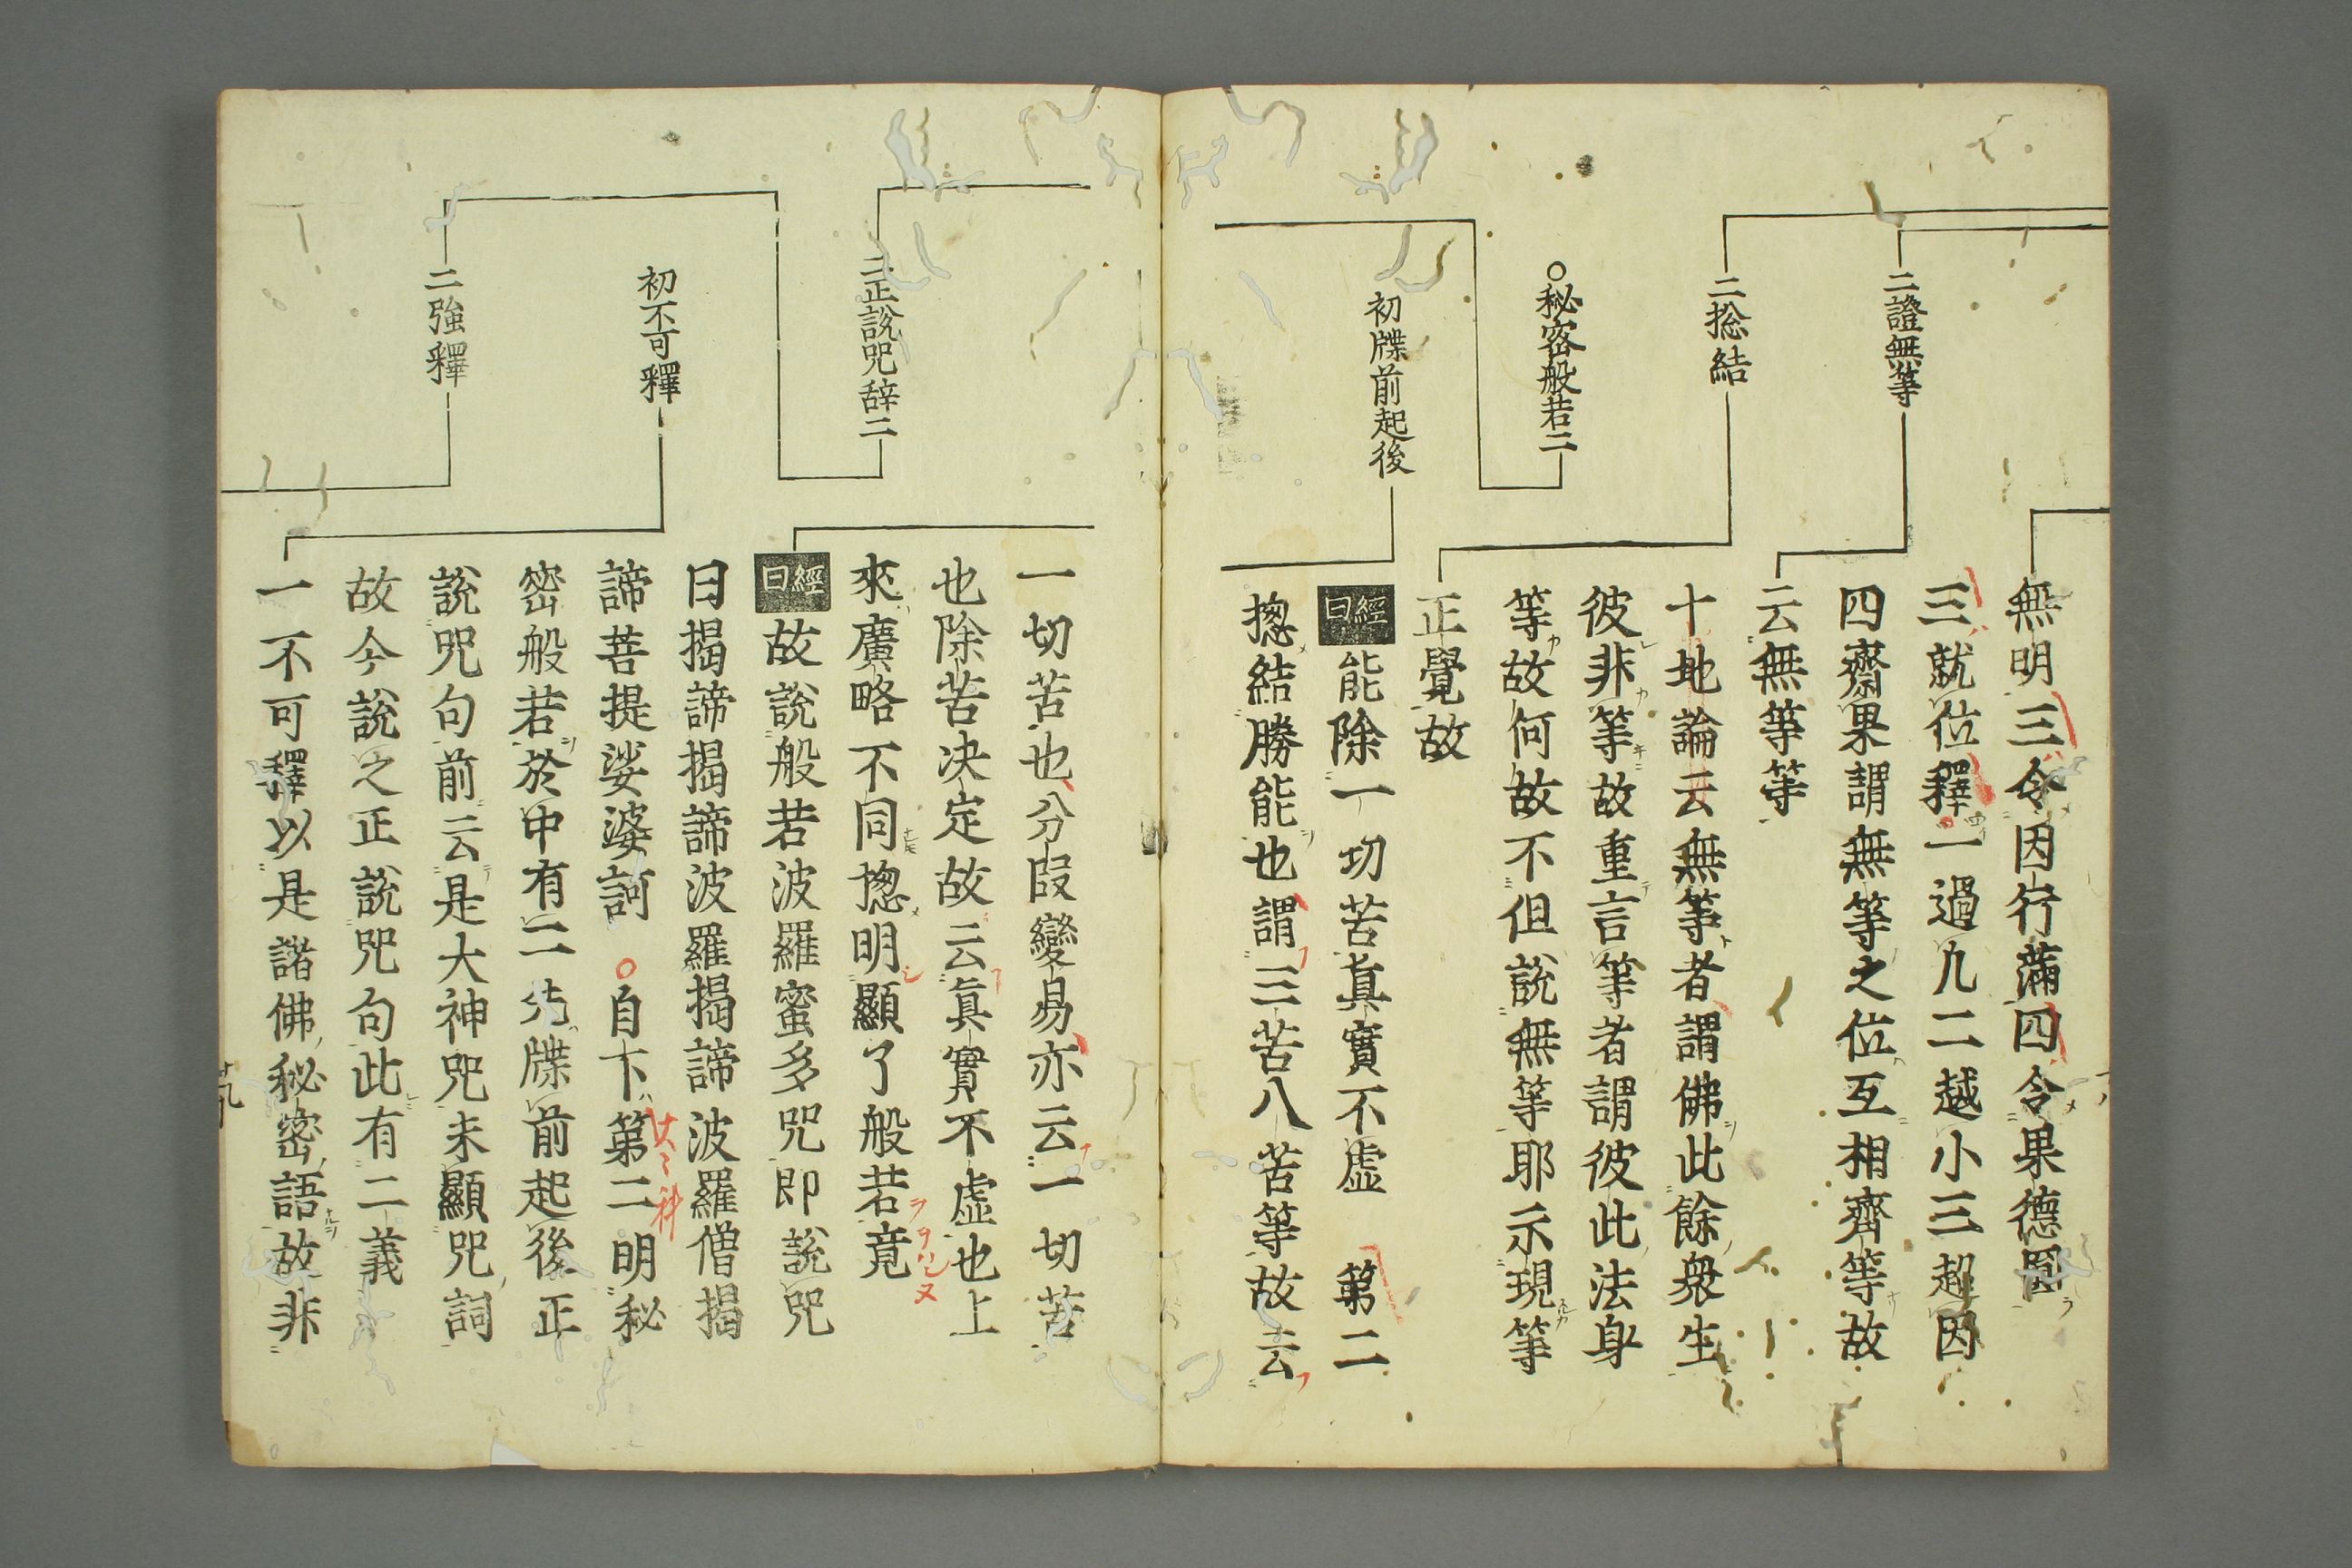 二證無等
二捴結
○秘密般若二
初牒前起後
無明三令因行滿四令果德圓
三就位釋一過凡二越小三超因
四齊果謂無等之位互相齊等故
云無等等
十地論云無等者謂佛此餘衆生
彼非等故重言等者謂彼此法身
等故何故不但説無等耶示現等
正覺故
經曰能除一切苦真實不虛 第二
揔結勝能也謂三苦八苦等故云
二正説咒辞二
初不可釋
二強釋
一切苦也分段變易亦云一切苦
也除苦决定故云真實不虛也上
來廣略不同揔明顯了般若竟
經曰故説般若波羅蜜多咒即説咒
曰揭諦揭諦波羅揭諦波羅僧揭
諦菩提娑婆訶 ○自下第二明秘
密般若於中有二先牒前起後正
説咒句前云是大神咒未顯咒詞
故今説之正説咒句此有二義
一不可釋以是諸佛秘密語故非